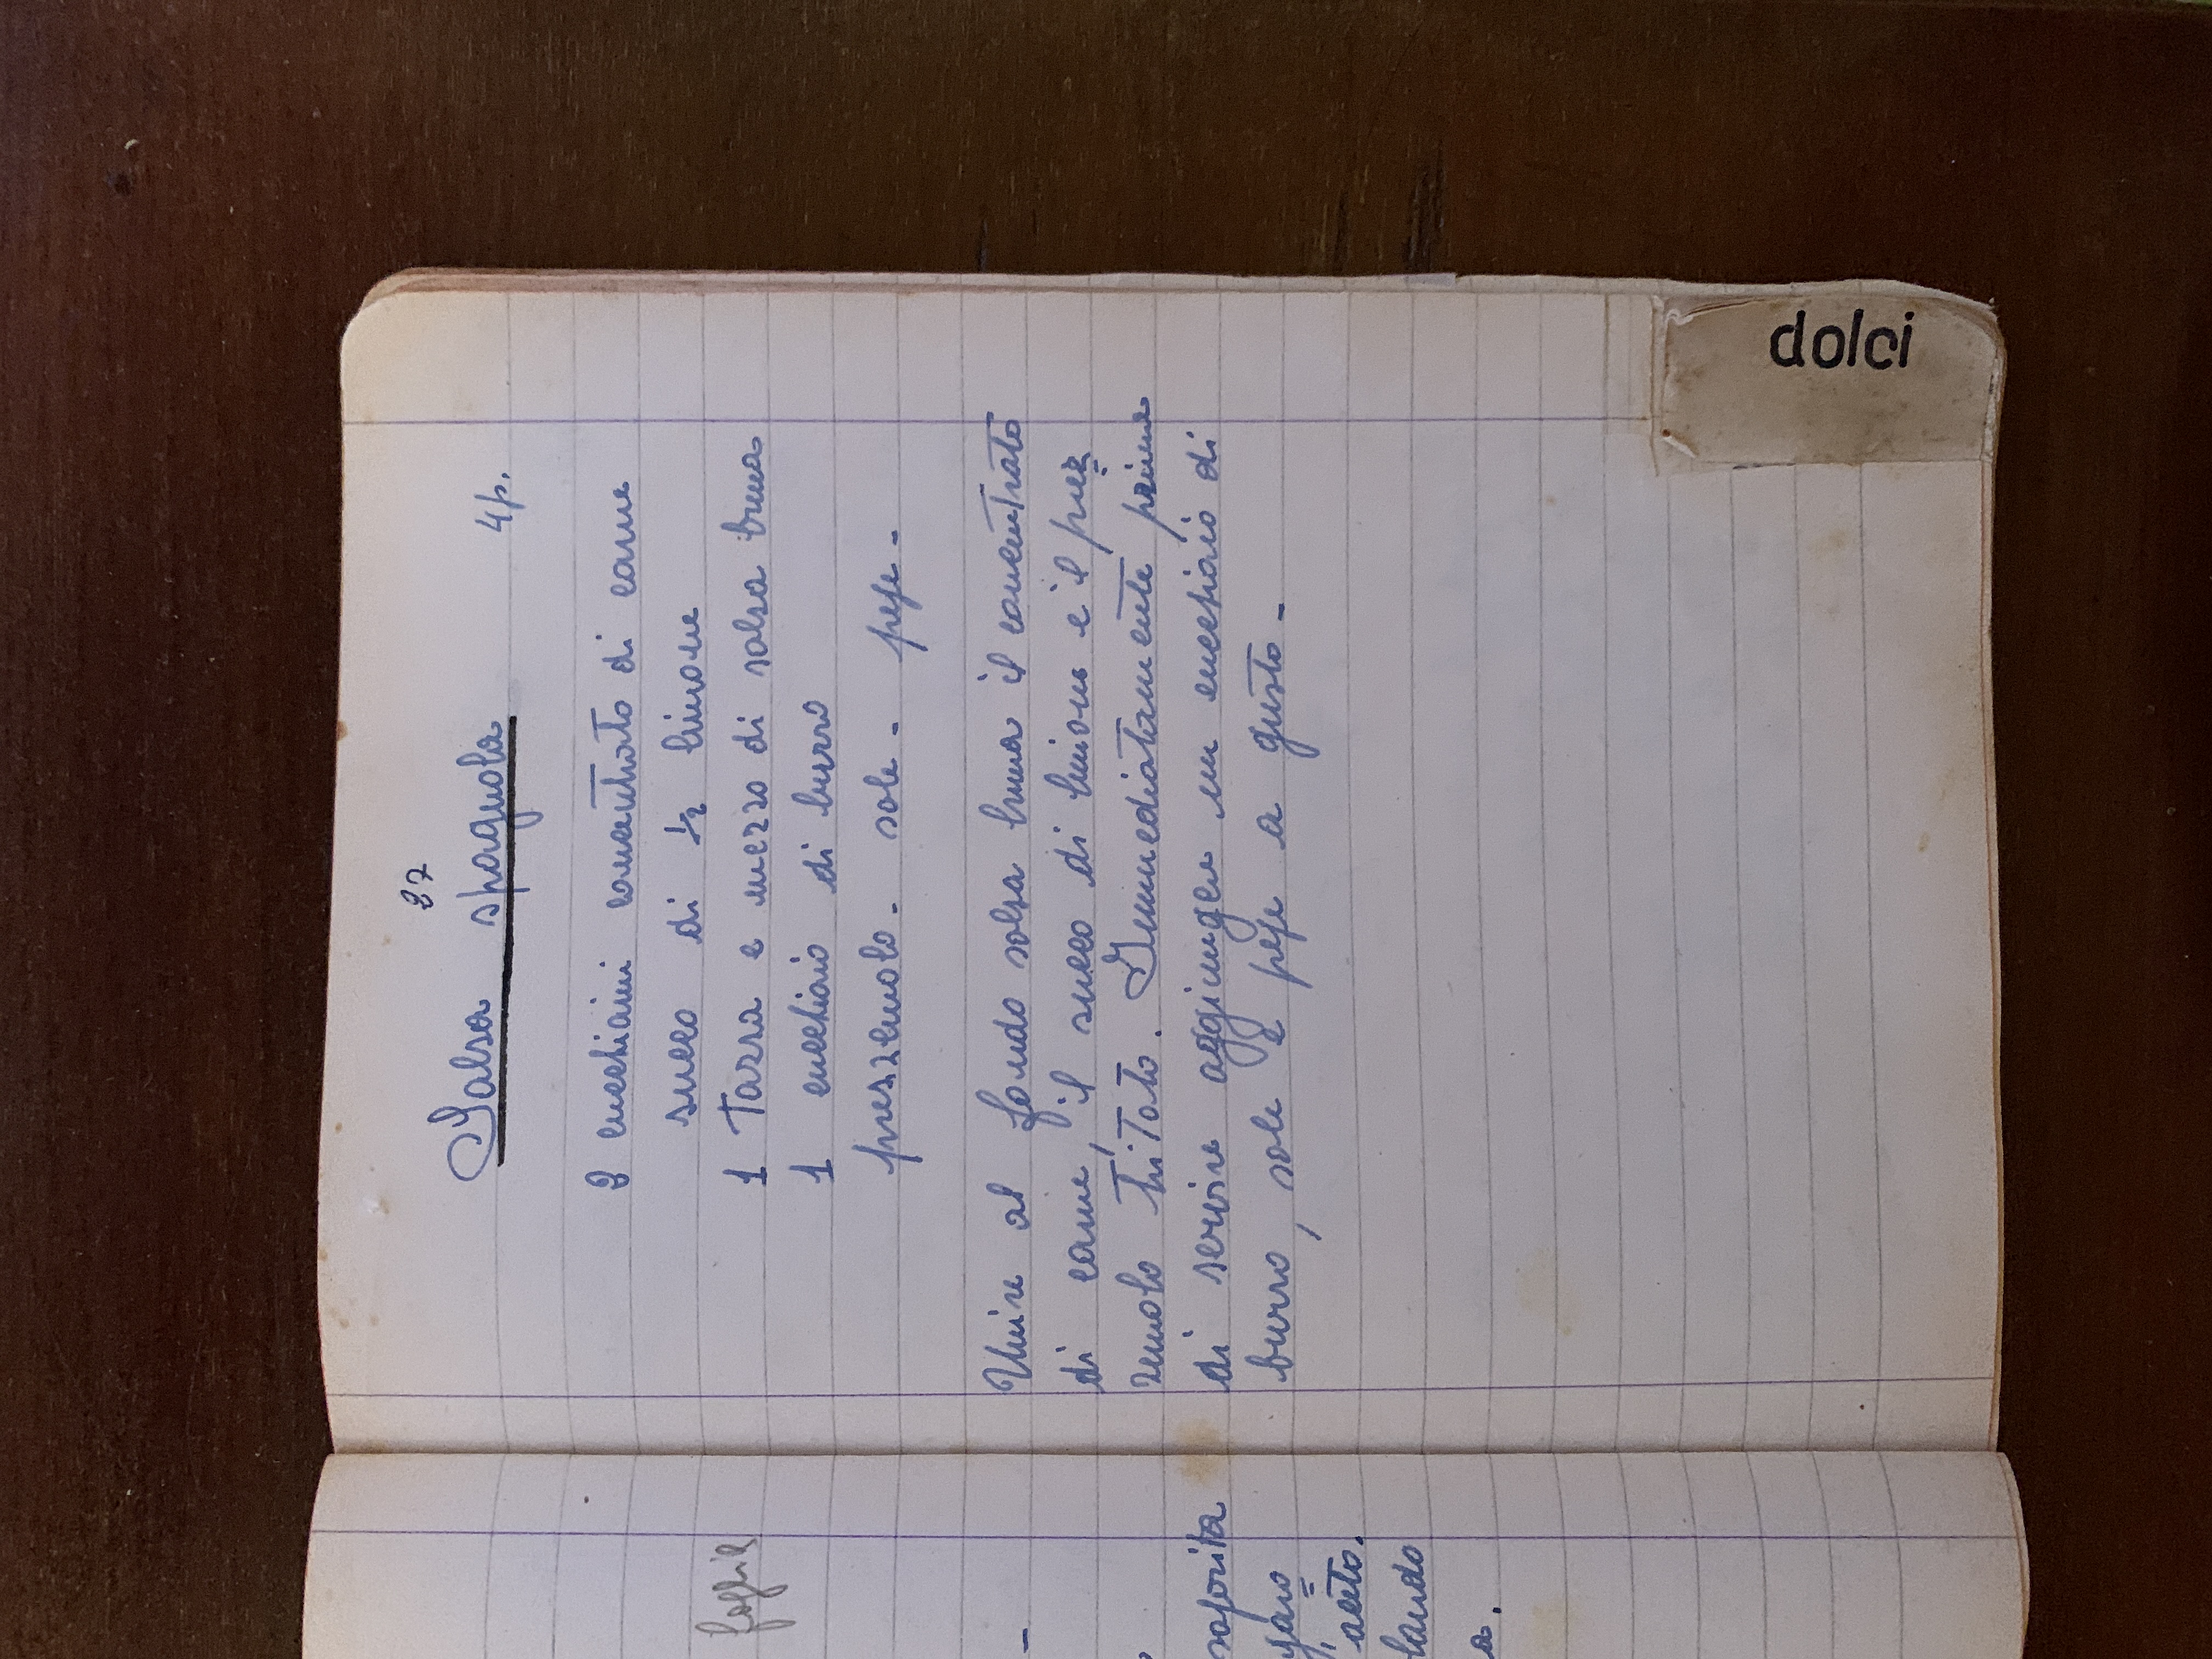 foglie
saporita
aceto.
lando
a.
27
Salsa spagnola 4 p.
2 cucchiaini concentrato di carne
succo di ½ limone
1 Tazza e mezzo di salsa bruna
1 cucchiaio di burro
prezzemolo - sale - pepe -
Unire al fondo salsa bruna il concentrato
di carne, il succo di limone e il prez=
zemolo tritato. Immediatamente prima
di servire aggiungere un cucchiaio di
burro, sale e pepe a gusto -
dolci